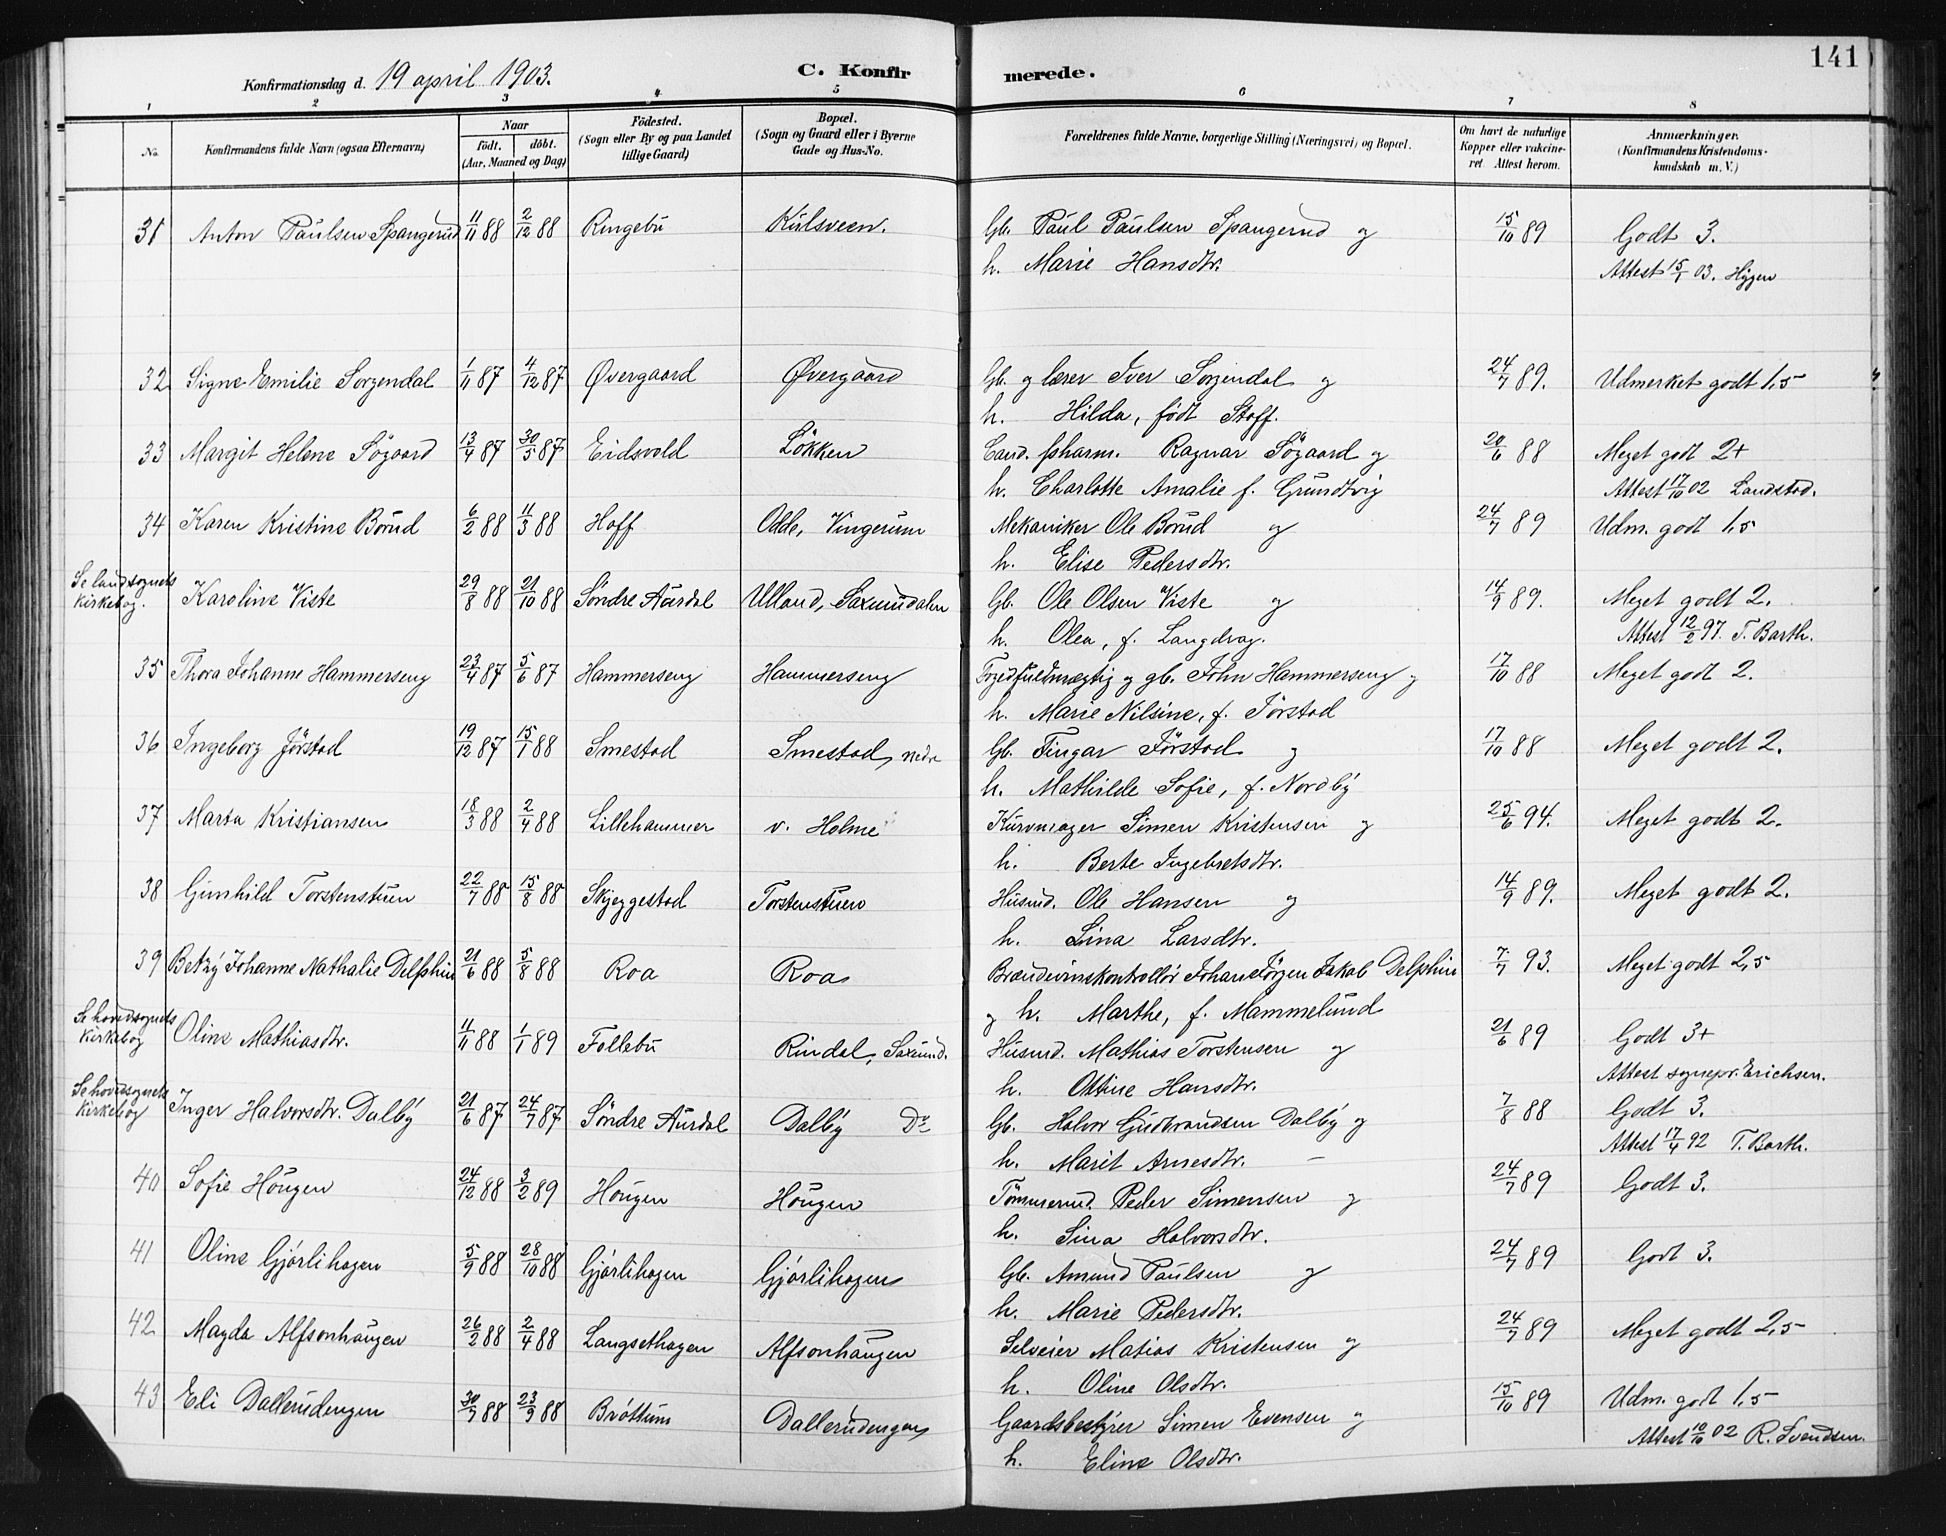 141
Konfirmationsdag d. 19 april 1903. C. Konfirmerede.
1 2 3 4 5 6 7 8
No. Konfirmandens fulde Navn (ogsaa Efternavn) Naar födt. döbt. (Aar, Maaned og Dag) Födested. (Sogn eller By og paa Landet tillige Gaard) Bopæl. (Sogn og Gaard eller i Byerne Gade og Hus-No. Forældrenes fulde Navne, borgerlige Stilling (Næringsvei) og Bopæl. Om havt de naturlige Kopper eller vakcineret Attest herom. Anmærkninger. (Konfirmandens Kristendomskundskab m. V.)
31 Anton Paulsen Spangerud 11/11 88 2/12 88 Ringebu Kulsveen. Gb. Paul Paulsen Spangerud og 15/10 89 Godt 3.
h. Marie Hansdtr. Attest 15/1 03. Hygen
32 Signe Emilie Sorgendal 1/11 87 4/12 87 Øvergaard Øvergaard Gb. og lærer Iver Sorgendal og 24/7 89. Udmerket godt 1,5
h. Hilda, født Stoff.
33 Margit Helene Sögaard 13/4 87 30/5 87 Eidsvold Lökken Cand. pharm. Ragnar Sögaard og 20/6 88 Meget godt 2+
h. Charlotte Amalie f. Grundtvig Attest 17/10 02 Landstad.
34 Karen Kristine Borud 6/2 88 11/3 88 Hoff Odde, Vingerum Mekaniker Ole Borud og 24/7 89 Udm. godt 1,5
h. Elise Pedersdtr.
Se landsognets kirkebog. Karoline Viste 29/8 88 21/10 88 Söndre Aurdal Ulland, Saxumdalen Gb. Ole Olsen Viste og 14/9 89. Meget godt 2.
h. Olea, f. Langdrag. Attest 12/2 97. T. Barth.
35 Thora Johanne Hammerseng 23/4 87 5/6 87 Hammerseng Hammerseng Fogedfuldmægtig og gb. John Hammerseng og 17/10 88 Meget godt 2.
h. Marie Nilsine, f. Jörstad
36 Ingeborg Jörstad 19/12 87 15/1 88 Smestad Smestad, nedre Gb. Fingar Jörstad og 17/10 88 Meget godt 2.
h. Mathilde Sofie, f. Nordby
37 Marta Kristiansen 18/3 88 2/4 88 Lillehammer v. Holme Kurvmager Simen Kristensen og 25/6 94. Meget godt 2.
h. Berte Ingebretsdtr.
38 Gunhild Torstenstuen 22/7 88 15/8 88 Skjeggestad Torstenstuen Husmd. Ole Hansen og 14/9 89. Meget godt 2.
h. Lina Larsdtr.
39 Betzy Johanne Nathalie Delphin 21/6 88 5/8 88 Roa Roa Brændevinskontrollör Johan Jörgen Jakob Delphin 7/7 93. Meget godt 2,5
og h. Marthe, f. Mammelund
Se hovedsognets kirkebog Oline Mathiasdtr. 11/11 88 1/1 89 Follebu Rindal, Saxumd. Husmd. Mathias Torstensen og 21/6 89 Godt 3+
h. Oltine Hansdtr. Attest sognepr. Erichsen.
Se hovedsognets kirkebog Inger Halvorsdtr. Dalby 21/6 87 24/7 87 Söndre Aurdal Dalby Do Gb. Halvor Gudbrandsen Dalby og 7/8 88 Godt 3.
h. Marit Arnesdtr. — Attest 17/4 92 T. Barth.
40 Sofie Hougen 24/12 88 3/2 89 Hougen Hougen Tömmermd. Peder Simensen og 24/7 89 Godt 3.
h. Sina Halvorsdtr.
41 Oline Gjörlihagen 5/9 88 28/10 88 Gjörlihagen Gjörlihagen Gb. Amund Paulsen og 24/7 89 Godt 3.
h. Marie Pedersdtr.
42 Magda Alfsonhaugen 26/2 88 2/4 88 Langsethagen Alfsonhaugen Selveier Matias Kristensen og 24/7 89 Meget godt 2,5
h. Oline Olsdtr.
43 Eli Dallerudengen 30/7 88 23/9 88 Bröttum Dallerudengen Gaardsbestyrer Simen Evensen og 15/10 89 Udm. godt 1,5
h. Eline Olsdtr. Attest 10/10 02 R. Svendsen.